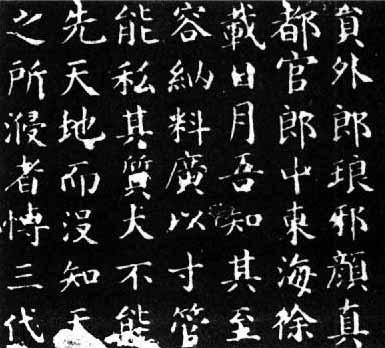 員外郎琅邪顏真
都官郎中東海徐
載日月吾知其至
容納料廣以寸管
能私其質犬不能
先天地而沒知天
之所者愽三代